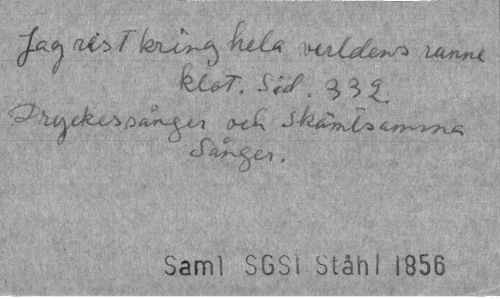 Jag rest kring hela verldens runne
klot. Sid. 332
Dryckessånger och Skämtsamma
Sånger.
Saml SGS1 Ståhl 1856